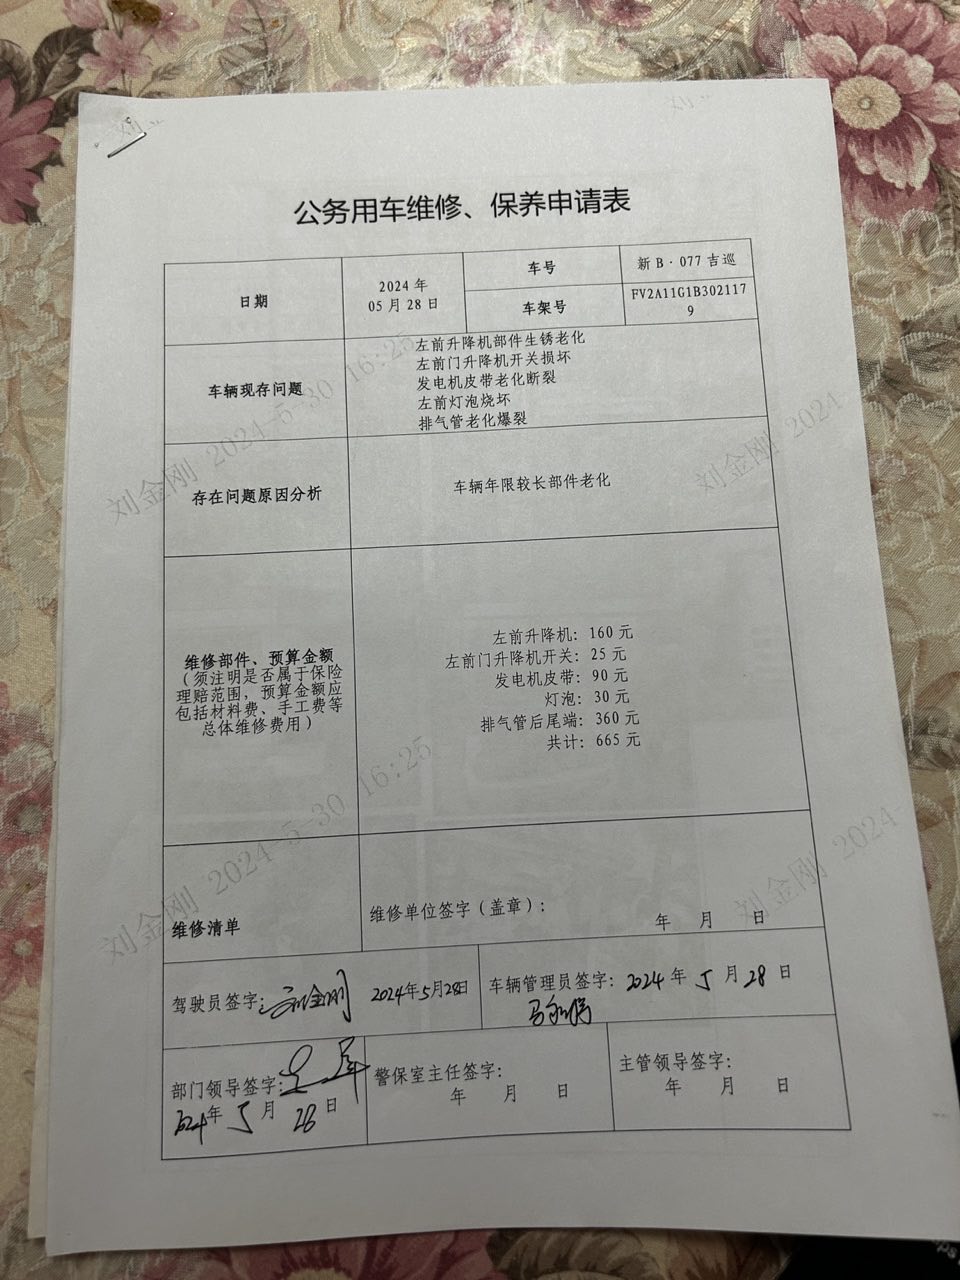 公务用车维修、保养申请表
日期
2024 年
05 月 28 日
车号
新 B·077 吉巡
车架号
FV2A11G1B302117
9
车辆现存问题
左前升降机部件生锈老化
左前门升降机开关损坏
发电机皮带老化断裂
左前灯泡烧坏
排气管老化爆裂
存在问题原因分析
车辆年限较长部件老化
维修部件、预算金额
（须注明是否属于保险
理赔范围，预算金额应
包括材料费、手工费等
总体维修费用）
左前升降机：160 元
左前门升降机开关：25 元
发电机皮带：90 元
灯泡：30 元
排气管后尾端：360 元
共计：665 元
维修清单
维修单位签字（盖章）：
年 月 日
驾驶员签字：刘金刚 2024年5月28日
车辆管理员签字：2024 年 5 月 28 日
部门领导签字：
2024年 5 月 28 日
警保室主任签字：
年 月 日
主管领导签字：
年 月 日
刘金刚 2024-5-30 16:25
刘金刚 2024
刘金刚 2024-5-30 16:25
刘金刚 2024